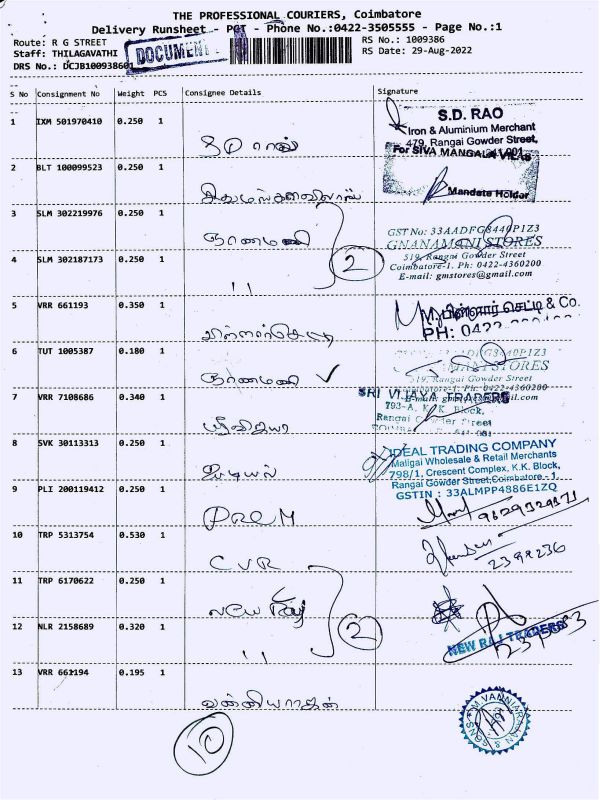 THE PROFESSIONAL COURIERS, Coimbatore
Delivery Runsheet - PCT - Phone No.:0422-3505555 - Page No.:1
Route: R G STREET
RS No.: 1009386
Staff: THILAGAVATHI
DOCUMENT
RS Date: 29-Aug-2022
DRS No.: DCJB100938601
S No Consignment No Weight PCS Consignee Details Signature
1 IXM 501970410 0.250 1
S.D. RAO
Iron & Aluminium Merchant
479, Rangai Gowder Street,
For SIVA MANGALA VILAS
2 BLT 100099523 0.250 1
Mandate Holder
3 SLM 302219976 0.250 1 ஞானமணி
GST No: 33AADFG8440P1Z3
GNANAMANI STORES
519, Rangai Gowder Street
Coimbatore-1. Ph: 0422-4360200
E-mail: gmstores@gmail.com
2
4 SLM 302187173 0.250 1 ,,
5 VRR 661193 0.350 1
M. பிள்ளார் செட்டி & Co.
PH: 0422
6 TUT 1005387 0.180 1 ஞானமணி
MANI STORES
519, Rangai Gowder Street
7 VRR 7108686 0.340 1
SRI VIJAYA TRADERS
793-A, K. K. Block,
8 SVK 30113313 0.250 1
IDEAL TRADING COMPANY
Maligai Wholesale & Retail Merchants
798/1, Crescent Complex, K.K. Block,
Rangai Gowder Street, Coimbatore - 1.
GSTIN : 33ALMPP4886E1ZQ
9 PLI 200119412 0.250 1 PREM
10 TRP 5313754 0.530 1 CVR
2399236
11 TRP 6170622 0.250 1
2
12 NLR 2158689 0.320 1 ,,
NEW RAJ TRADERS
13 VRR 661194 0.195 1 வன்னியராஜன்
10